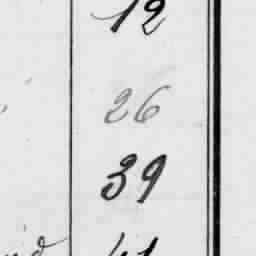 12
26
39
41